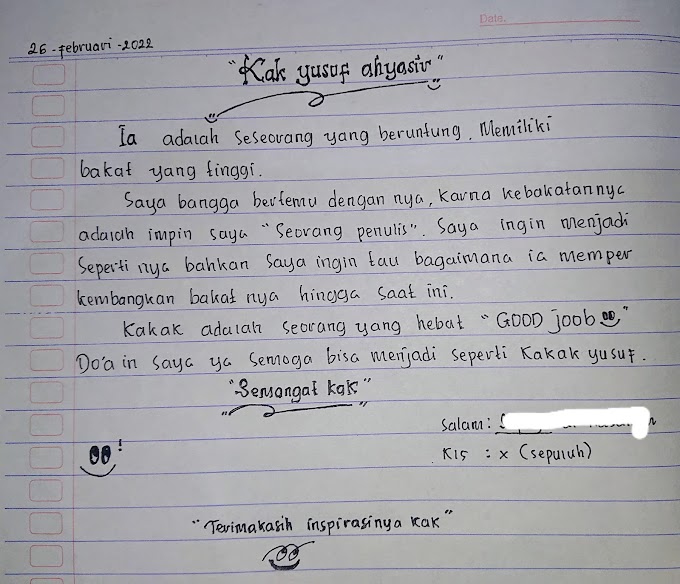 Date.
26-februari-2022
"Kak yusuf ahyasir"
Ia adalah seseorang yang beruntung. Memiliki
bakat yang tinggi.
Saya bangga bertemu dengan nya, karna kebakatannya
adalah impin saya "Seorang penulis". Saya ingin menjadi
seperti nya bahkan saya ingin tau bagaimana ia memper
kembangkan bakat nya hingga saat ini.
Kakak adalah seorang yang hebat "GOOD joob"
Do'a in saya ya semoga bisa menjadi seperti kakak yusuf.
"Semangat kak"
Salam:
Kls : x (sepuluh)
"Terimakasih inspirasinya kak"